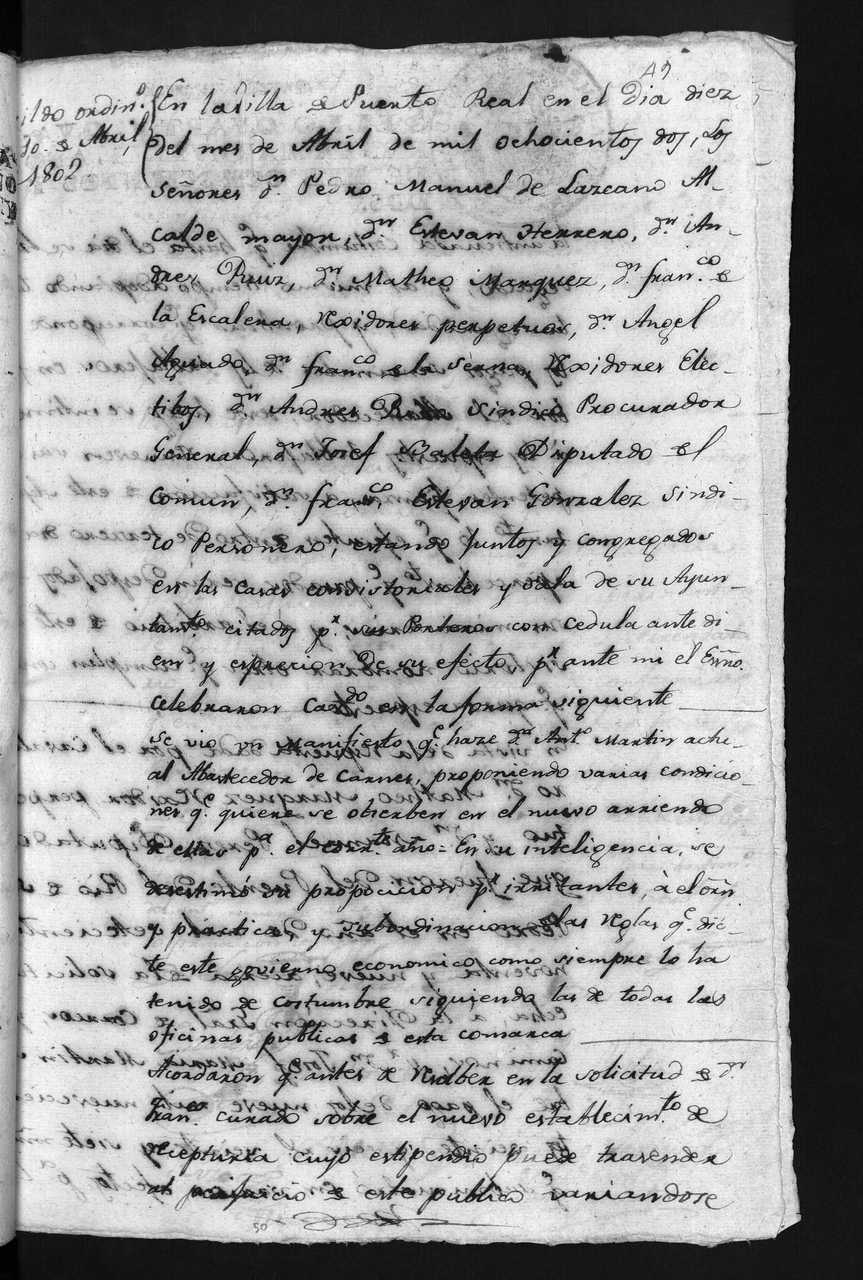 49
ildo ordin.º
10. de Abril,
1802.
En la Villa de Puento Real en el Dia diez
del mes de Abril de mil ochocientos dos, Los
señores d.n Pedro Manuel de Lazcano Al-
calde mayor, d.n Estevan Herrero, d.n An-
drez Ruiz, d.n Matheo Marquez, d.n fran.co de
la Escalera, rexidores perpetuos, d.n Angel
Aguado d.n fran.co de la Serna, Rexidores Elec-
tibos, d.n Andres Sindico Procurador
General, d.n Josef Diputado del
Comun, d.n fran.co Estevan Gonzalez Sindi-
co Personero, estando Juntos y congregados
en las casas consistoriales y sala de su Ayun-
tam.to citados p.r sus Porteros con cedula ante di-
em y esprecion de su efecto p.r ante mi el Esno.
celebraron Cav.do en la forma siguiente
se vio un manifiesto q.e haze d.n Ant.o Martin
al Abastecedor de Carnes, proponiendo varias condicio-
nes q.e quiere se obserben en el nuevo arriendo
de estas p.a el corr.te año = En su inteligencia, se
desestimó su proposicion p.r irritantes, à el orn
y practica y subordinacion a las reglas q.e dic-
te este govierno economico como siempre lo ha
tenido de costumbre siguiendo las de todas las
oficinas publicas de esta comarca
Acordaron q.e antes de resolber en la solicitud de d.n
fran.co curado sobre el nuevo establecim.to de
recepturia cuyo estipendio puede trasender
al perjuicio de este publico variandose
50